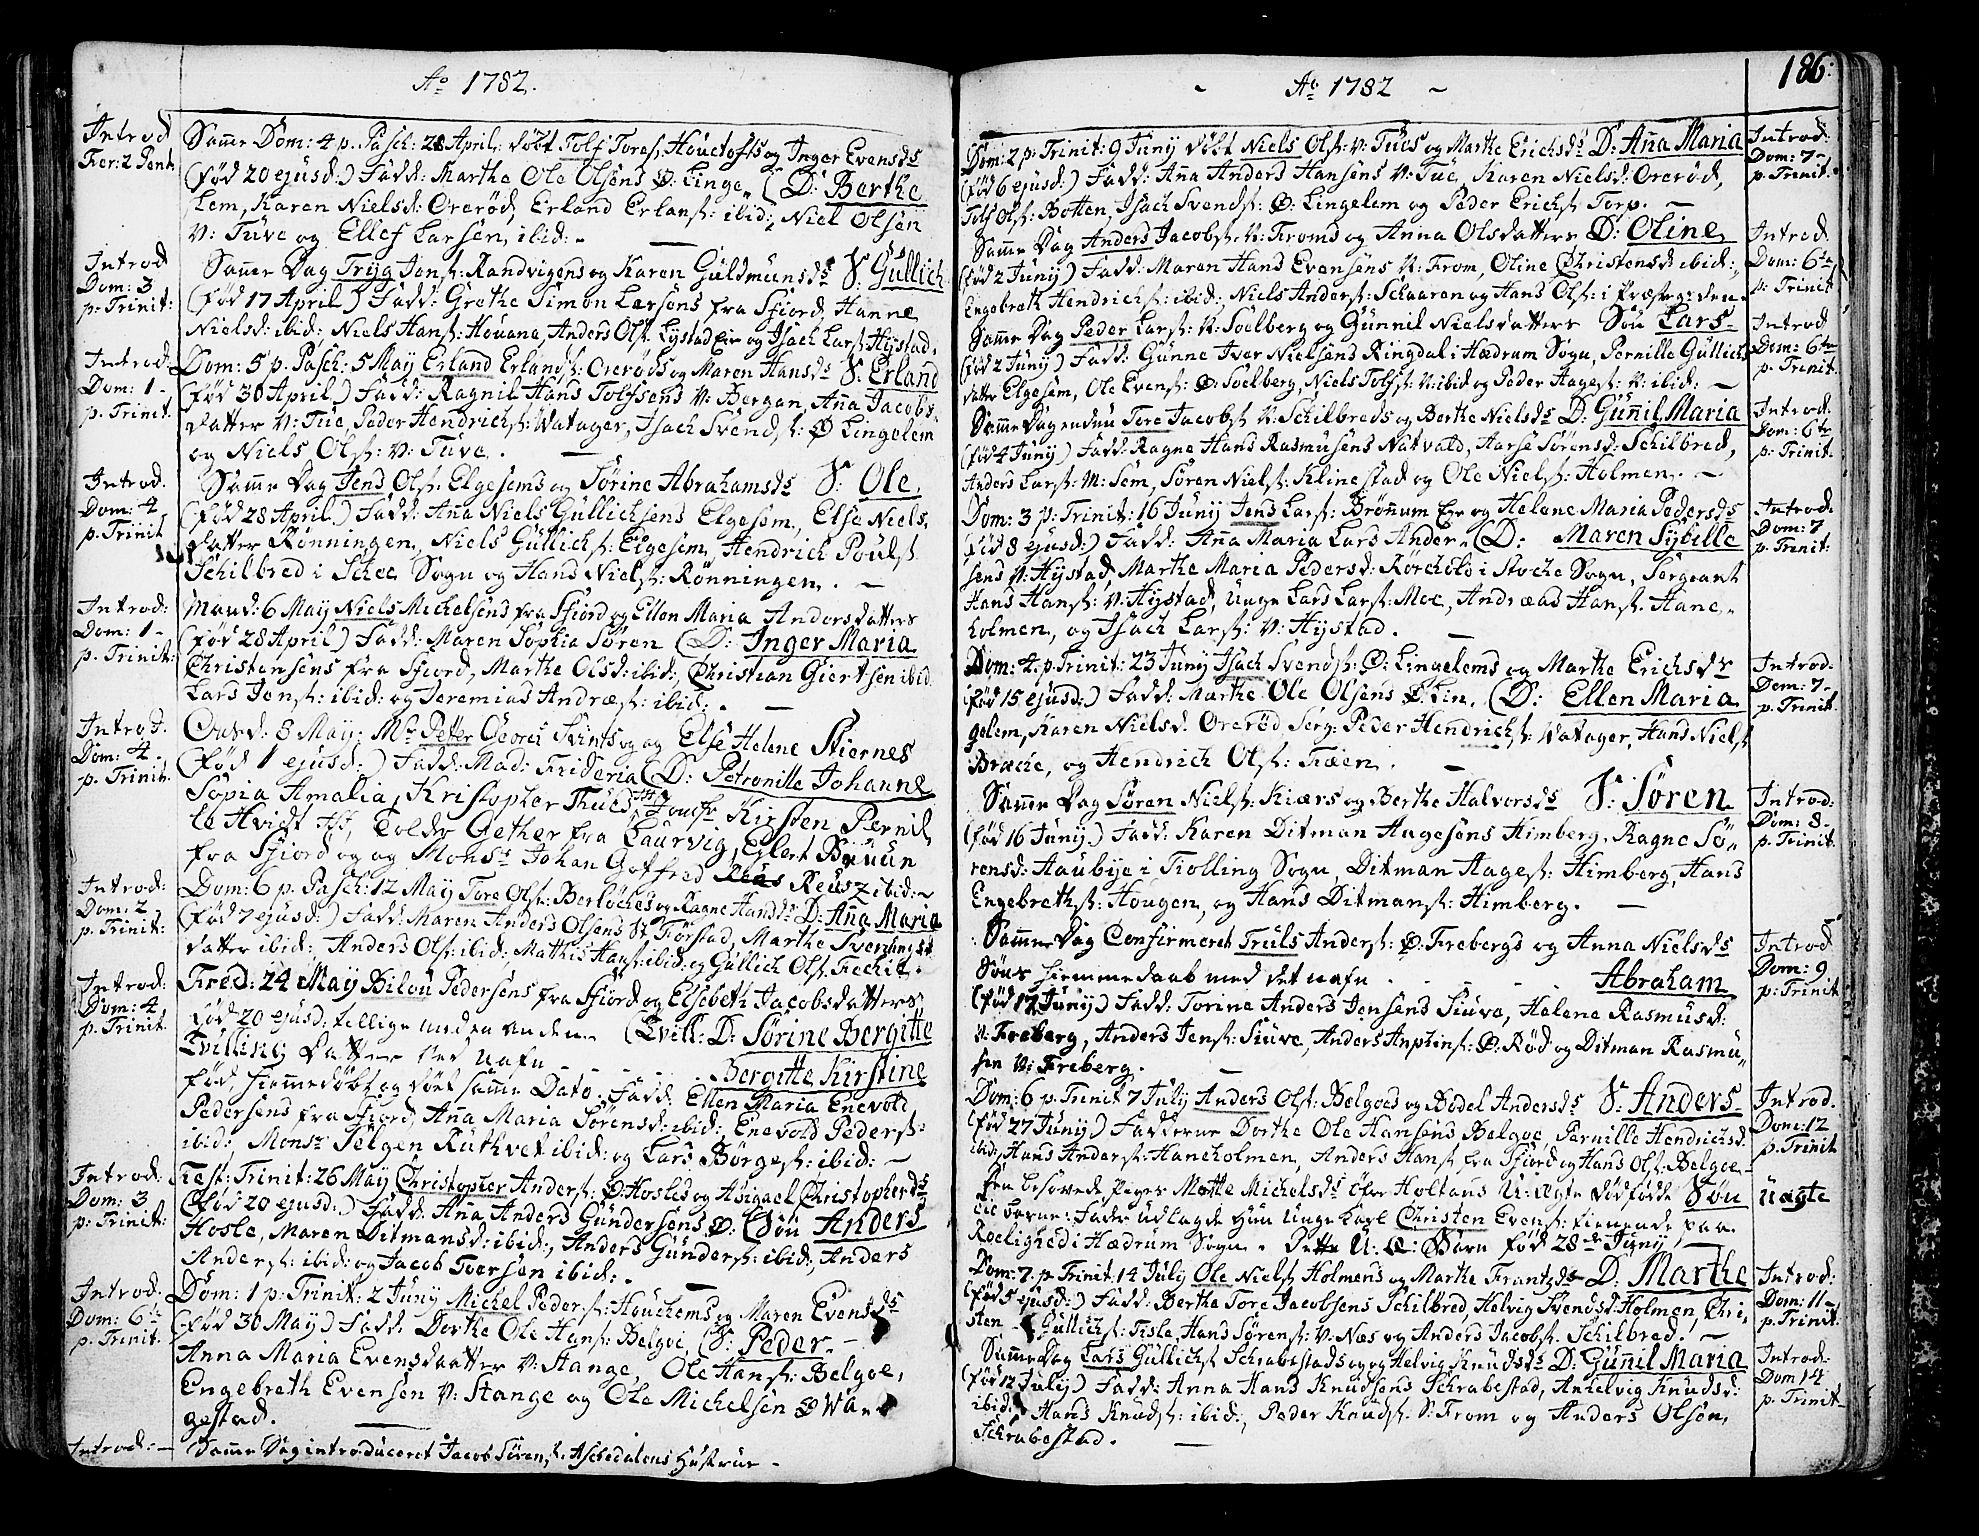 Ao 1782.
Introd
Fer: 2 Pent.
Samme Dom: 4 p. Pasch: 28 April: døbt Tolf Tores. Houetofts og Inger Evensds
(fød 20 ejusd:) Fadd: Marthe Ole Olsens Ø. Linge- (D: Berthe
lem, Karen Nielsd: Orerød, Erland Erlans: ibid:, Niel Olsen
N: Tuve og Ellef Larsen, ibid: -
Introd
Dom: 3
p: Trinit:
Samme Dag Tryg Jons: Randvigens og Karen Guldmunsds S: Gullich
(fød 17 April) Fadd: Grethe Simon Larsens fra Fiord, Hanne
Nielsd: ibid: Niels Hans: Houane, Anders Ols: Lystad Eie og Isach Lars: Hystad.
Introd
Dom: 1 -
p: Trinit.
Dom: 5 p. Pasch: 5 May Erland Erlands: Orerøds og Maren Hansds S: Erland
(fød 30 April) Fadd: Ragnil Hans Tolfsens N: Bergan, Anna Jacobs
datter N: Tue, Peder Hendrichs: Watager, Isach Svends: Ø Lingelem
og Niels Ols: N: Tuve.
Introd.
Dom: 4
p. Trinit
Samme Dag Jens Ols: Elgesems og Sørine Abrahamsds S: Ole.
(fød 28 April.) Fadd: Anna Niels Gullichsens Elgesem, Else Niels
datter Rønningen, Niels Gullichs: Elgesem, Hendrich Pouls:
Schilbred i Schee Sogn og Hans Niels: Rønningen. -
Introd:
Dom: 1 -
p. Trinit:
Mand: 6 May Niels Michelsens fra Fiord og Ellen Maria Andersdatters
(fød 28 April) Fadd: Maren Sophia Søren (D: Inger Maria
Christensens fra Fiord, Marthe Olsd: ibid:, Christian Giertsen ibid:
Lars Jens: ibid: og Jeremias Andræs: ibid:. -
Introd.
Dom: 4
p. Trinit.
Onsd: 8 May: Mr Petter Georg og Else Helene Stiernes
(fød 1 ejusd:) Fadd: Mad: Frideria (D: Petronille Johanne
Sopia Amalia, Kristopher Thues Jomfr: Kirsten Pernil
le Hvidt, Told: Gether fra Laurvig, Eylert Bruun
fra Fiord og Monsr Johan Gotfred Reusz ibid: -
Introd:
Dom: 2
p. Trinit:
Dom: 6 p. Pasch: 12 May Tore Ols: Berløches og Ragne Hansds D: Anna Maria
(fød 7 ejusd:) Fadd: Maren Anders Olsens N Førstad, Marthe Svennings
datter ibid:, Anders Ols: ibid:, Mathis Hans: ibid: og Gullich Ols: Fechie.
Introd:
Dom: 4
p. Trinit
Fred: 24 May Bilou Pedersens fra Fiord og Elsebeth Jacobsdatters
fød 20 ejusd: tillige med en anden (Tvill: D: Sørine Bergitte
Tvilling Datter ved nafn - - - Bergitte Kirstine
fød, hiemmedøbt og død samme Dato. Fadd. Ellen Maria Enevold
Pedersens fra Fiord, Anna Maria Sørensd: ibid:, Enevold Peders:
ibid:, Monsr Jelgen Ruthvet ibid: og Lars Børges: ibid: -
Introd.
Dom: 3
p: Trinit:
Fest: Trinit: 26 May Christopher Anders: Ø Hosles og Abigael Christopherds
(fød 20 ejusd:) Fadd: Anna Anders Gundersens Ø: (Søn Anders
Hosle, Maren Ditmansd: ibid:, Anders Gunders: ibid:, Anders
Anders: ibid: og Jacob Toersen ibid:.
Introd.
Dom: 6te
p. Trinit.
Dom: 1 p. Trinit: 2 Juny Michel Peders: Houchems og Maren Evensds
(fød 30 May) Fadd: Dorthe Ole Hans: Belgoe, (S: Peder -
Anna Maria Evensdaatter N: Stange, Ole Hans: Belgoe,
Engebreth Evensen N: Stange og Ole Michelsen Ø Wa-
gestad.
Introd: -
Samme Dag introduceret Jacob Sørens: Aschedalens Hustrue -
186:
- Ao 1782 -
Dom: 2 p: Trinit: 9 Juny døbt Niels Ols: N: Tues og Marthe Erichsds D: Anna Maria
(fød 6 ejusd:) Fadd: Anna Anders Hansens N: Tue, Karen Nielsd: Orerød,
Tolf Ols: Botten, Isach Svends: Ø. Lingelem og Peder Erichs: Torp. -
Introd.
Dom: 7 -
p. Trinit.
Samme Dag Anders Jacobs: N: Froms og Anna Olsdatters D: Oline
(fød 2 Juny) Fadd: Maren Hans Evensens N: From, Oline Christensd: ibid:,
Engebreth Hendrichs: ibid:, Niels Anders: Schaaren og Hans Ols: i Præsteg: den.
Introd
Dom: 6te
p: Trinit
Samme Dag Peder Lars: N: Soelberg og Gunnil Nielsdatters Søn Lars -
(fød 2 Juny) Fadd: Gunne Iver Nielsens Ringdal i Hædrum Sogn, Pernille Gullichs
datter Elgesem, Ole Evens: Ø: Soelberg, Niels Tolfs: N: ibid og Peder Hages: N: ibid: -
Introd
Dom: 6te
p. Trinit.
Samme Dag endnu Tore Jacobs: N: Schilbreds og Berthe Nielsds D: Gunnil Maria
(fød 4 Juny) Fadd: Ragne Hans Rasmusens Natvald, Aarse Sørensd: Schilbred,
Anders Lars: M: Sem, Søren Niels: Klinestad og Ole Niels: Holmen. -
Introd.
Dom: 6te
p: Trinit.
Dom: 3 p: Trinit: 16 Juny Jens Lars: Brønnum Eie og Helene Maria Pedersds
(fød 8 ejusd:) Fadd: Anna Maria Lars Ander- (D: Maren Sybille
sens N: Hystad, Marthe Maria Pedersd: Rørchold i Stoche Sogn, Sergeant
Hans Hans: N: Hystad, Unge Lars Lars: Moe, Andreas Hans: Hane-
holmen, og Isach Lars: N: Hystad. -
Introd.
Dom: 7
p: Trinit:
Dom: 4. p: Trinit: 23 Juny Isach Svends: Ø: Lingelems og Marthe Erichsdr
(fød 15 ejusd:) Fadd: Marthe Ole Olsens Ø: Lin- (D: Ellen Maria
gelem, Karen Nielsd: Orerød Serg: Peder Hendrichs: Watager, Hans Niels:
Bræche, og Hendrich Ols: Fræen. -
Introd:
Dom: 7 -
p. Trinit.
Samme Dag Søren Niels: Kiærs og Berthe Halvorsds S: Søren
(fød 16 Juny.) Fadd: Karen Ditman Hagesens Himberg, Ragne Sø-
rensd: Haubye i Tiølling Sogn, Ditman Hages: Himberg, Hans
Engebreths: Hougen, og Hans Ditmans: Himberg. -
Introd:
Dom: 8 -
p: Trinit.
Samme Dag Confirmeret Truls Anders: Ø: Frebergs og Anna Nielsds
Søns hiemmedaab med det nafn. - - - Abraham
(fød 17 Juny) Fadd: Torine Anders Jensens Siuve, Helene Rasmusd:
N: Freberg, Anders Jens: Siuve, Anders Anphins: Ø: Rød og Ditman Rasmu-
sen N: Freberg. -
Introd
Dom: 9
p: Trinit
Dom: 6 p: Trinit 7 July Anders Ols: Belgoes og Bodel Andersds S: Anders
(fød 27 Juny) Fadderne Dorthe Ole Hansens Belgoe, Pernille Hendrichsd:
ibid:, Hans Anders: Haneholmen, Anders Hans: fra Fiord og Hans Ols: Belgoe -
Introd.
Dom: 12
p: Trinit
Den besovede Piges Mette Michelsds øfre Holtans U: ægte dødfødde Søn
Til barne: Fader udlagde hun Unge Karl Christen Evens: tienende paa
Roelighed i Hædrum Sogn. Dette U: Æ: Barn fød 28de Juny. -
Uægte
Dom: 7. p: Trinit 14 July Ole Niels: Holmens og Marthe Frantzds D: Marthe
(fød 5 ejusd:) Fadd: Berthe Tore Jacobsens Schilbred, Helvig Svendsd: Holmen, Chri-
sten Gullichs: Tisle, Hans Sørens: N: Næs og Anders Jacobs: Schilbred. -
Introd:
Dom: 11 -
p: Trinit
Samme Dag Lars Gullichs: Schrabestads og Helvig Knudsds D: Gunnil Maria
(fød 12 July) Fadd: Anna Hans Knudsens Schrabestad, Anhelvig Knudsd:
ibid: Hans Knuds: ibid:, Peder Knuds: S: From og Anders Olsøn,
Schrabestad. -
Introd:
Dom 14
p: Trinit -